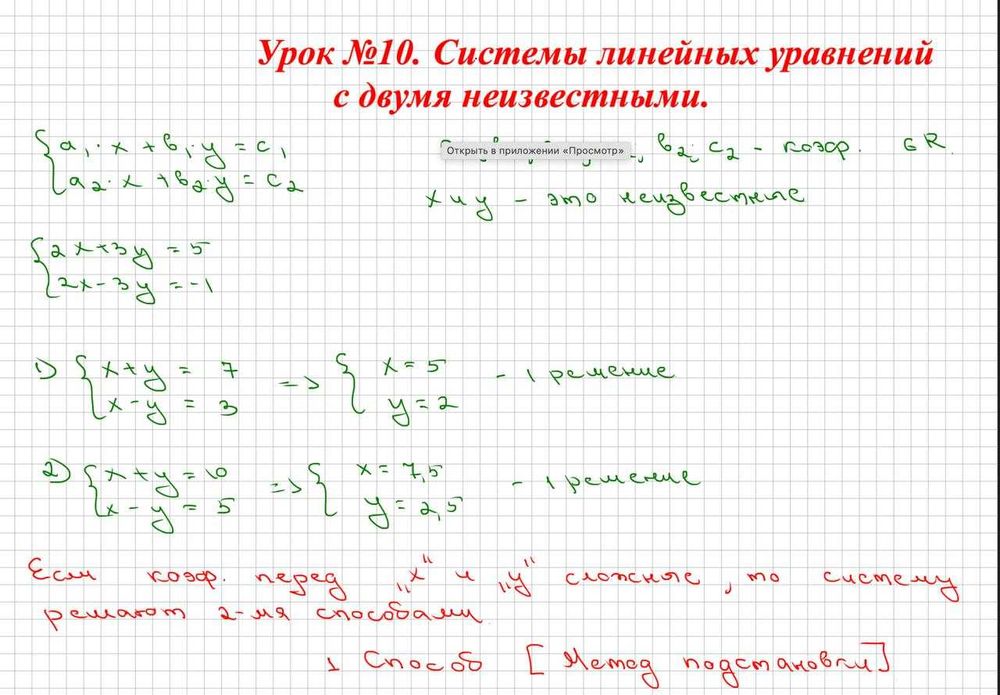 Урок №10. Системы линейных уравнений
с двумя неизвестными.
{ a₁·x + b₁·y = c₁
{ a₂·x + b₂·y = c₂
b₂; c₂ – коэф. ∈ R.
Открыть в приложении «Просмотр»
x и y – это неизвестные
{ 2x+3y = 5
{ 2x-3y = -1
1) { x+y = 7
{ x-y = 3
=> { x = 5
{ y = 2
- 1 решение
2) { x+y = 10
{ x-y = 5
=> { x = 7,5
{ y = 2,5
- 1 решение
Если коэф. перед „x" и „y" сложные, то систему
решают 2-мя способами
1 Способ [Метод подстановки]